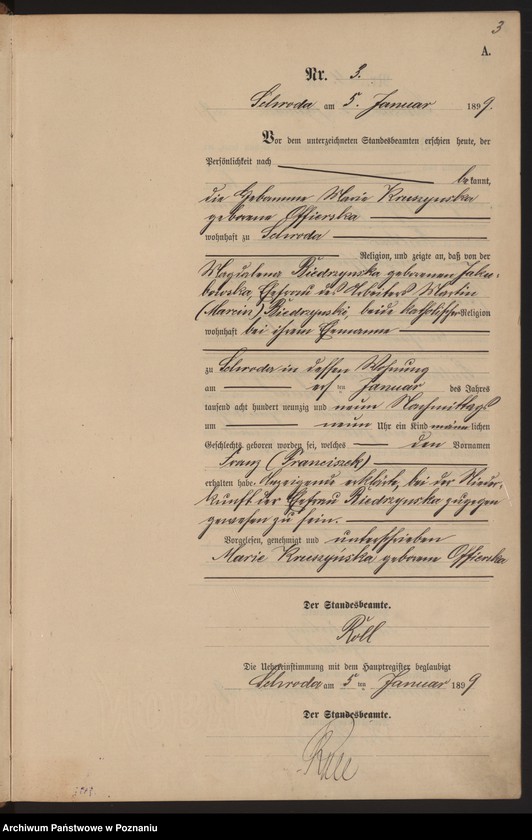 3
A.
Nr. 3.
Schroda am 5. Januar 1899.
Vor dem unterzeichneten Standesbeamten erschien heute, der
Persönlichkeit nach
bekannt,
die Hebamme Marie Kruszynska
geborene Offierska
wohnhaft zu Schroda
Religion, und zeigte an, daß von der
Magdalena Biedrzynska geborenen Jaku-
bowska, Ehefrau des Arbeiters Martin
(Marcin) Biedrzynski, beide katholischer Religion
wohnhaft bei ihrem Ehemanne
zu Schroda in dessen Wohnung
am ersten Januar des Jahres
tausend acht hundert neunzig und neun Nachmittags
um neun Uhr ein Kind männlichen
Geschlechts geboren worden sei, welches den Vornamen
Franz (Franciszek)
erhalten habe. Anzeigende erklärte, bei der Nieder-
kunft der Ehefrau Biedrzynska zugegen
gewesen zu sein.
Vorgelesen, genehmigt und unterschrieben
Marie Kruszyńska geborene Offierska
Der Standesbeamte.
Röll
Die Uebereinstimmung mit dem Hauptregister beglaubigt
Schroda am 5ten Januar 1899
Der Standesbeamte.
Röll
Archiwum Państwowe w Poznaniu